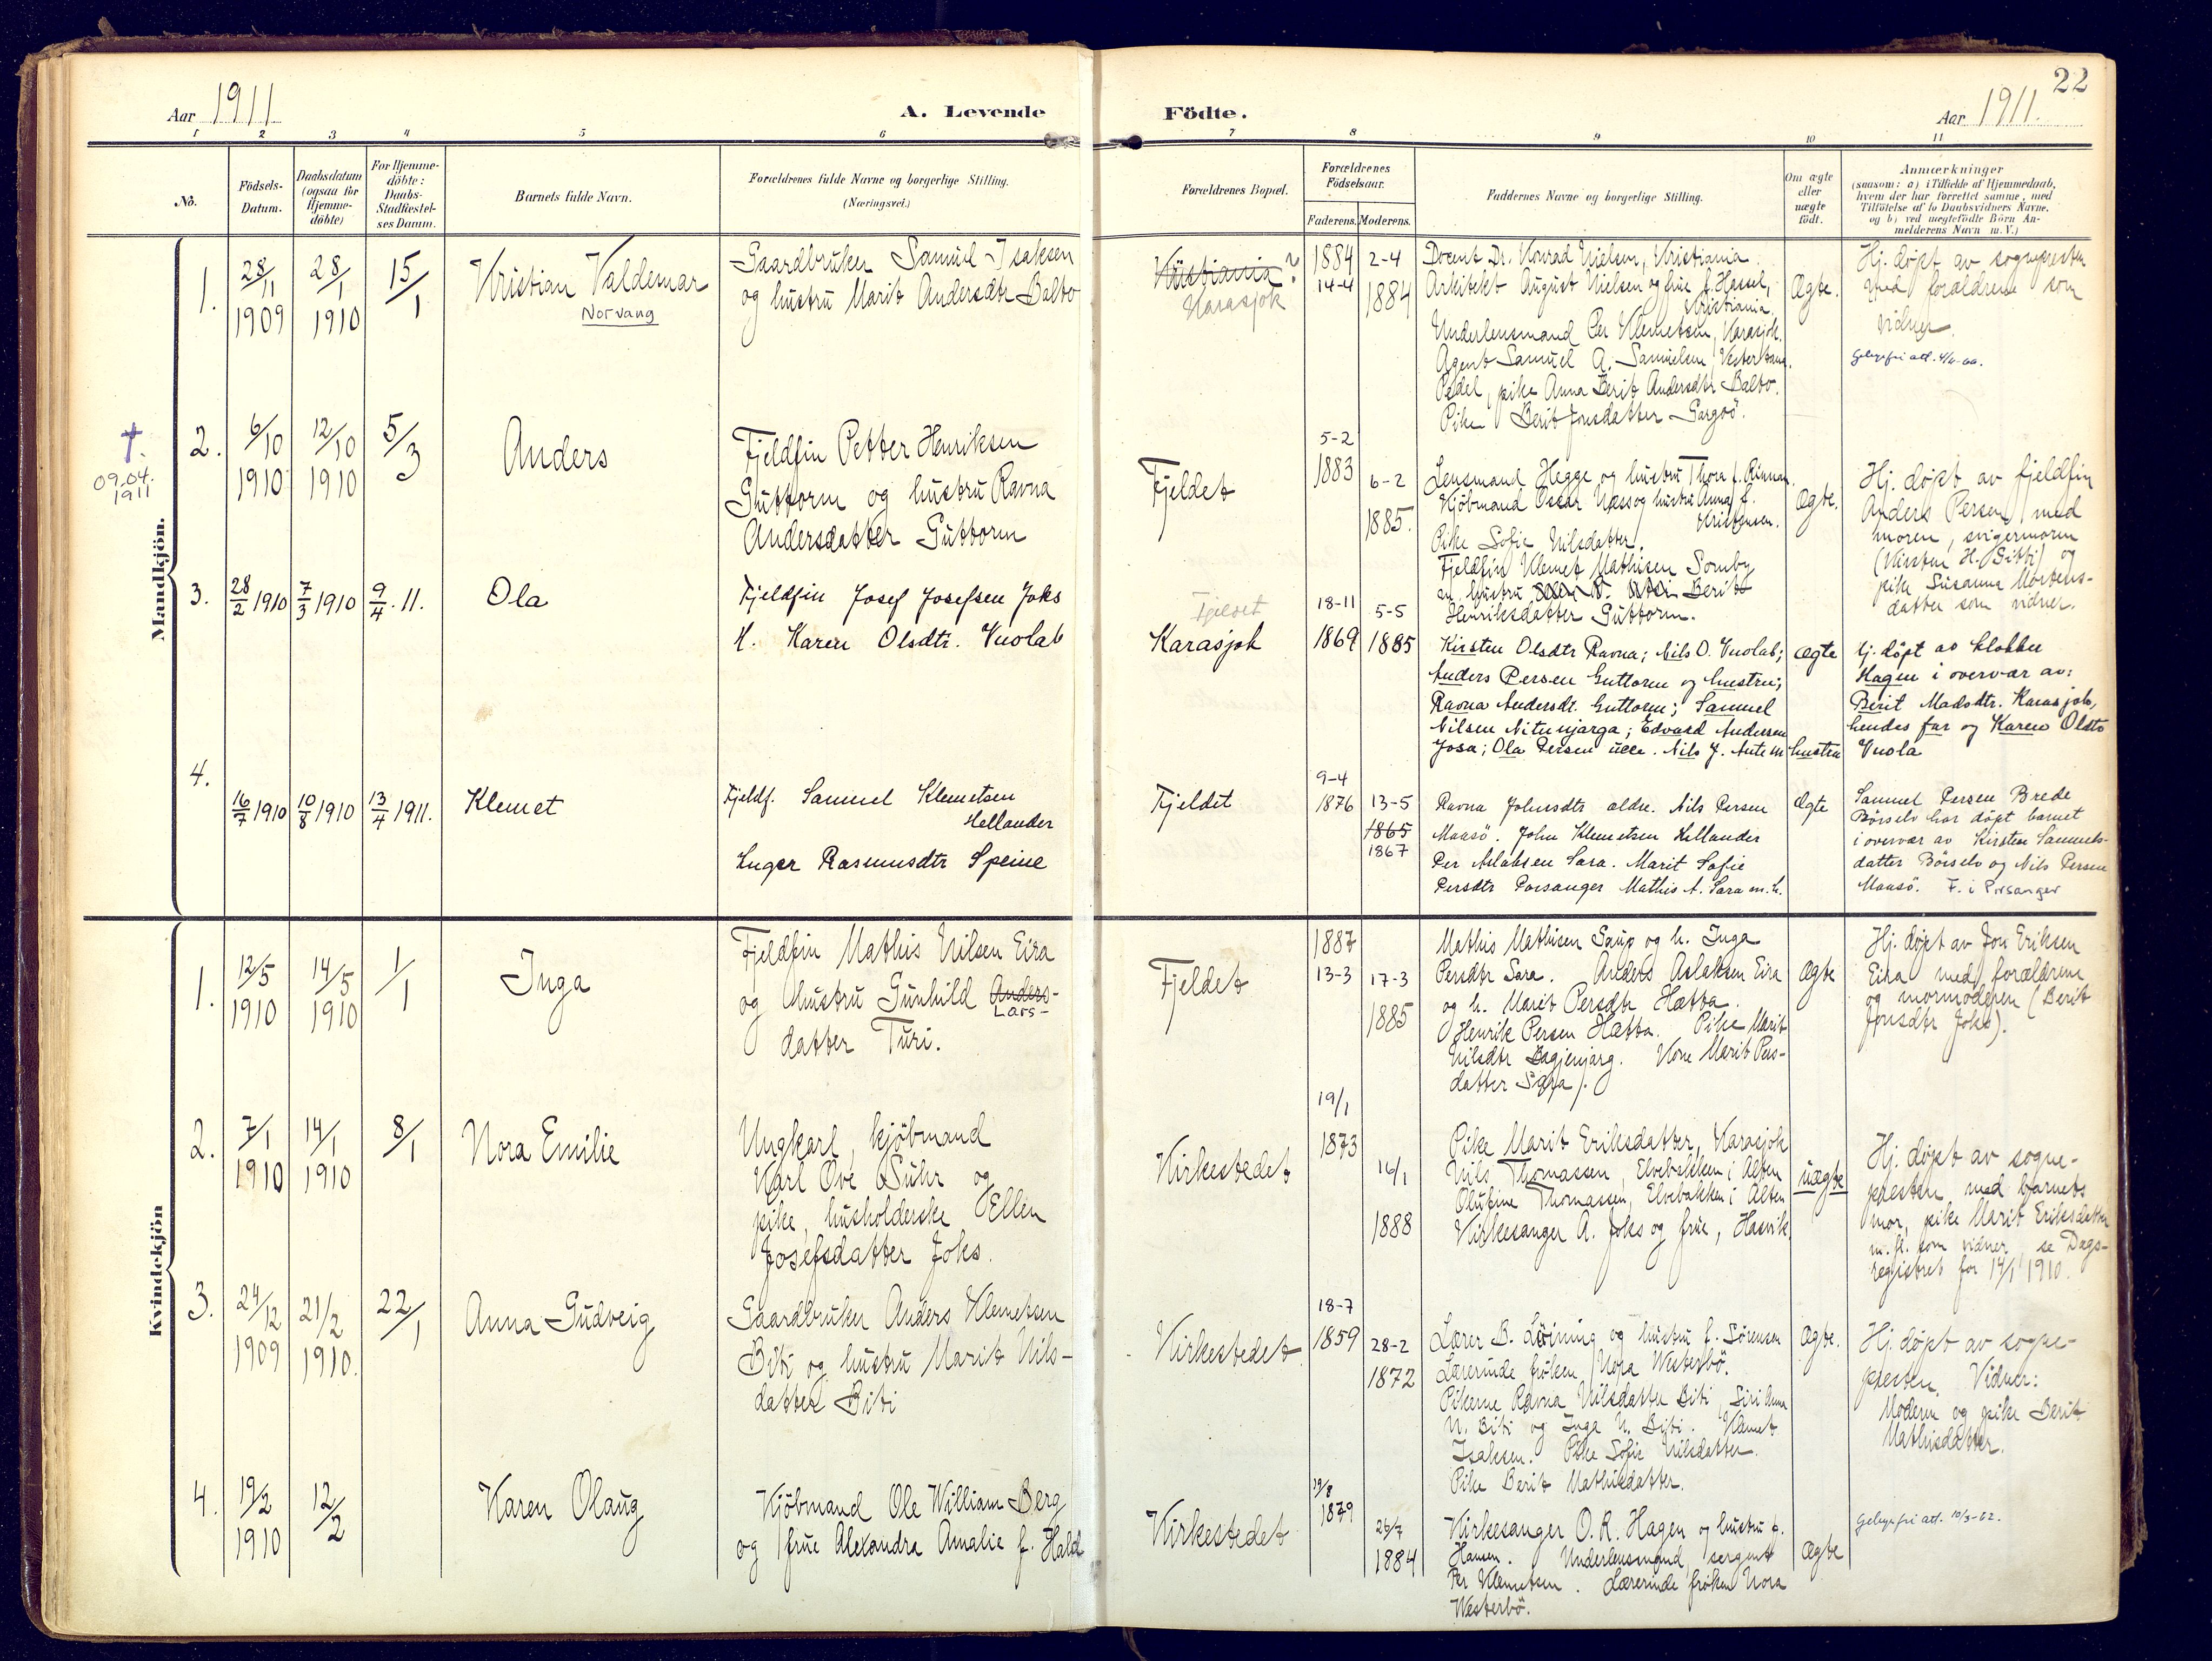 22
Aar 1911
A. Levende Födte.
Aar 1911.
1 2 3 4 5 6 7 8 9 10 11
No.
Födsels-Datum.
Daabsdatum (ogsaa for Hjemme-döbte)
For Hjemme-döbte: Daabs-Stadfæstel-ses Datum.
Barnets fulde Navn.
Forældrenes fulde Navne og borgerlige Stilling.
(Næringsvei.)
Forældrenes Bopæl.
Forældrenes Födselsaar.
Faderens. Moderens.
Faddernes Navne og borgerlige Stilling.
Om ægte eller uægte födt.
Anmærkninger
(saasom: a) i Tilfælde af Hjemmedaab,
hvem der har forrettet samme, med
Tilföielse af to Daabsvidners Navne.
og b) ved uægtefödte Börn An-
melderens Navn m. V.)
Mandkjön.
1.
28/11 1909
28/1 1910
15/1
Kristian Valdemar
Norvang
Gaardbruker Samuel Isaksen
og hustru Marit Andersdtr Balto
Kristiania?
Karasjok
1884
14-4
2-4
1884
Docent Dr. Konrad Nielsen, Kristiania.
Arkitekt August Nielsen og frue f. Hassel,
Kristiania.
Underlensmand Per Klemetsen, Karasjok.
Agent Samuel A. Samuelsen, Vestertana.
Pedel, pike Anna Berit Andersdtr Balto.
Pike Berit Jonsdatter Gargoö.
Ægte.
Hj. döpt av sognepresten
med forældrene som
vidner.
2.
†.
09.04.
1911
6/10 1910
12/10 1910
5/3
Anders
Fjeldfin Petter Henriksen
Guttorm og hustru Ravna
Andersdatter Guttorm
Fjeldet
5-2
1883
6-2
1885.
Lensmand Hegge og hustru Thora f. Rinnan.
Kjöbmand Oscar Næss og hustru Anna f.
Kristensen.
Pike Sofie Nilsdatter.
Fjeldfin Klemet Mathisen Somby
og hustru Berit
Henriksdatter Guttorm.
Ægte.
Hj. döpt av fjeldfin
Anders Persen med
moren, svigermoren
(Kirsten H. Gitti) og
pike Susanna Mortens-
datter som vidner.
3.
28/2 1910
7/3 1910
9/4. 11.
Ola
Fjeldfin Josef Josefsen Joks
H. Karen Olsdtr. Vuolab
Fjeldet
Karasjok
18-11
1869
5-5
1885
Kirsten Olsdtr Ravna; Nils O. Vuolab;
Anders Persen Guttorm og hustru;
Ravna Andersdt. Guttorm; Samuel
Nilsen Nitunjarga; Edvard Andersen
Josa; Ola Persen Nils J. Anti m hustru
ægte
hj. döpt av klokker
Hagen i overvær av:
Berit Madsdtr. Karasjok,
hendes far og Karen Oldtr
Vuola
4.
16/7 1910
10/8 1910
13/4 1911.
Klemet
Fjeldf. Samuel Klemetsen
Hellander
Inger Rasmusdtr Speine
Fjeldet
9-4
1876
13-5
1865
1867
Ravna Johnsdtr aldre. Nils Persen
Maasö. John Klemetsen Hellander
Per Aslaksen Sara. Marit Sofie
Persdtr Porsanger Mathis A. Sara m. h.
Ægte
Samuel Persen Brede
Börselv har döpt barnet
i overvær av Kirsten Samuels-
datter Börselv og Nils Persen
Maasö. F. i Porsanger
Kvindekjön
1.
12/5 1910
14/5 1910
1/1
Inga
Fjeldfin Mathis Nilsen Eira
og hustru Gunhild Anders-
Lars-
datter Turi.
Fjeldet
1887
13-3
17-3
1885
Mathis Mathisen Saup og h. Inga
Persdtr Sara. Anders Aslaksen Eira
og h. Marit Persdtr Hætta.
Henrik Persen Hætta. Pike Marit
Nilsdtr Kone Marit Pers-
datter Sara.
Ægte
Hj. döpt av Jon Eriksen
Eira med forældrene
og mormoderen (Berit
Jonsdtr Joks).
2.
7/1 1910
14/1 1910
8/1
Nora Emilie
Ungkarl, kjöbmand
Karl Ove Suhr og
pike, husholderske Ellen
Josefsdatter Joks.
Kirkestedet
19/1
1873
16/1
1888
Pike Marit Eriksdatter, Karasjok
Nils Thomassen, Elvebakken i Alten
Olufine Thomassen, Elvebakken i Alten
Kirkesanger A. Joks og frue, Hasvik
uægte
Hj. döpt av sogne-
presten med barnets
mor, pike Marit Eriksdatter
m. fl. som vidner, se Dags-
registret for 14/1 1910.
3.
24/12 1909
21/2 1910.
22/1
Anna Gudveig
Gaardbruker Anders Klemetsen
Biti og hustru Marit Nils-
datter Biti
Kirkestedet
18-7
1859
28-2
1872
Lærer B. Löining og hustru f. Sörensen
Lærerinde fröken Nora Westerbö.
Pikerne Ravna Nilsdatter Biti, Siri Anna
N. Biti og Inga N. Biti. Klemet
Isaksen. Pike Sofie Nilsdatter.
Pike Berit Mathisdatter.
Ægte.
Hj. döpt av sogne-
presten. Vidner:
Moderen og pike Berit
Mathisdatter.
4.
19/2 1910
12/2
Karen Olaug
Kjöbmand Ole William Berg
og frue Alexandra Amalie f. Hald
Kirkestedet
19/8
1879
26/7
1884
Kirkesanger O. R. Hagen og hustru f.
Hansen. Underlensmand, sergent
Per Klemetsen. Lærerinde fröken Nora
Westerbö.
Ægte
Gebyrfri att. 10/3-62.